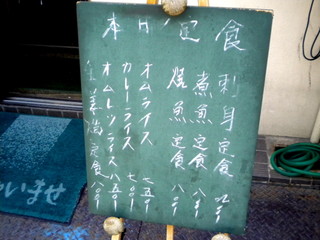 本日ノ定食
刺身定食
煮魚定食
焼魚定食 八〇〇
オムライス 七五〇
カレーライス 七〇〇
オムレツライス 八五〇
生姜焼定食 八〇〇
いませ